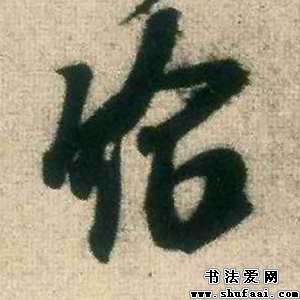 恰
书法爱网
www.shufaai.com